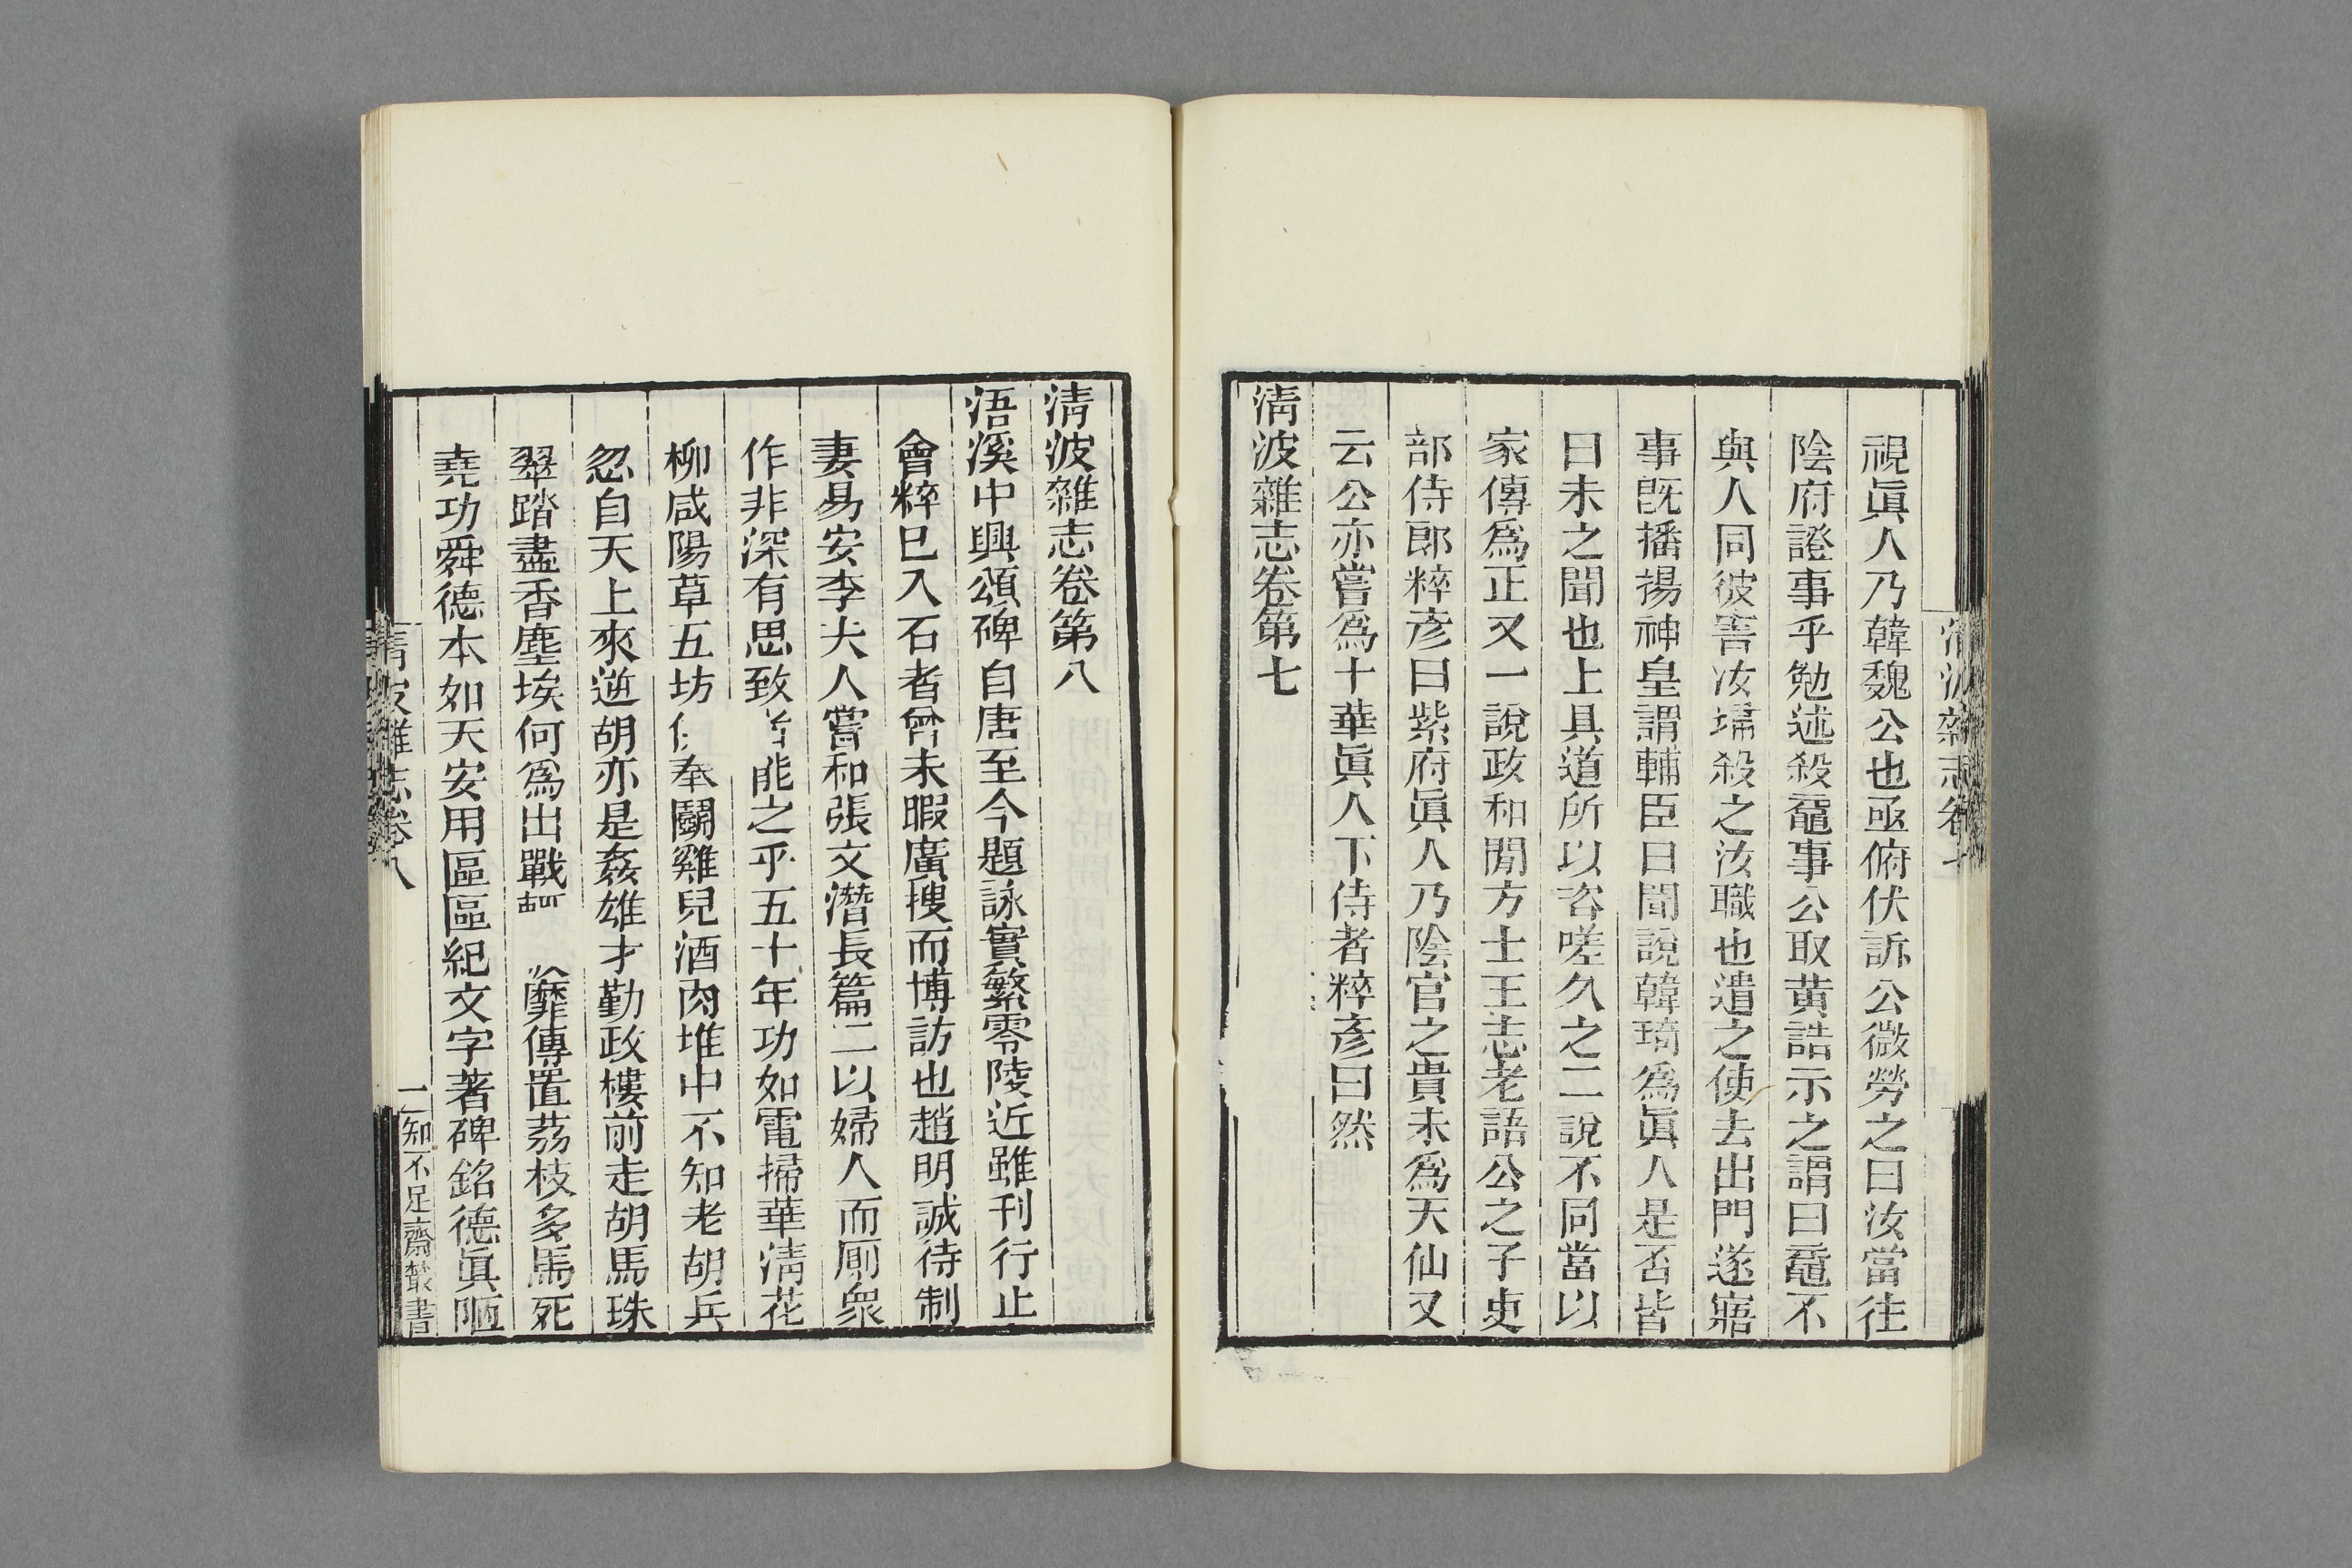 視眞人乃韓魏公也亟俯伏訴公微勞之曰汝當往
陰府證事乎勉述殺黿事公取黄誥示之謂曰黿不
與人同彼害汝壖殺之汝職也遣之使去出門遂寤
事旣播揚神皇謂輔臣曰聞說韓琦爲眞人是否皆
曰未之聞也上具道所以咨嗟久之二說不同當以
家傳爲正又一說政和閒方士王志老語公之子吏
部侍郎粹彥曰紫府眞人乃陰官之貴未爲天仙又
云公亦嘗爲十華眞人下侍者粹彥曰然
淸波雜志卷第七
淸波雜志卷第八
浯溪中興頌碑自唐至今題詠實繁零陵近雖刊行止
會粹已入石者曾未暇廣搜而博訪也趙明誠待制
妻易安李夫人嘗和張文潛長篇二以婦人而廁衆
作非深有思致者能之乎五十年功如電掃華淸花
柳咸陽草五坊供奉鬬雞兒酒肉堆中不知老胡兵
忽自天上來逆胡亦是姦雄才勤政樓前走胡馬珠
翠踏盡香塵埃何爲出戰靡傳置荔枝多馬死
堯功舜德本如天安用區區紀文字著碑銘德眞陋
淸波雜志卷八
一
知不足齋叢書